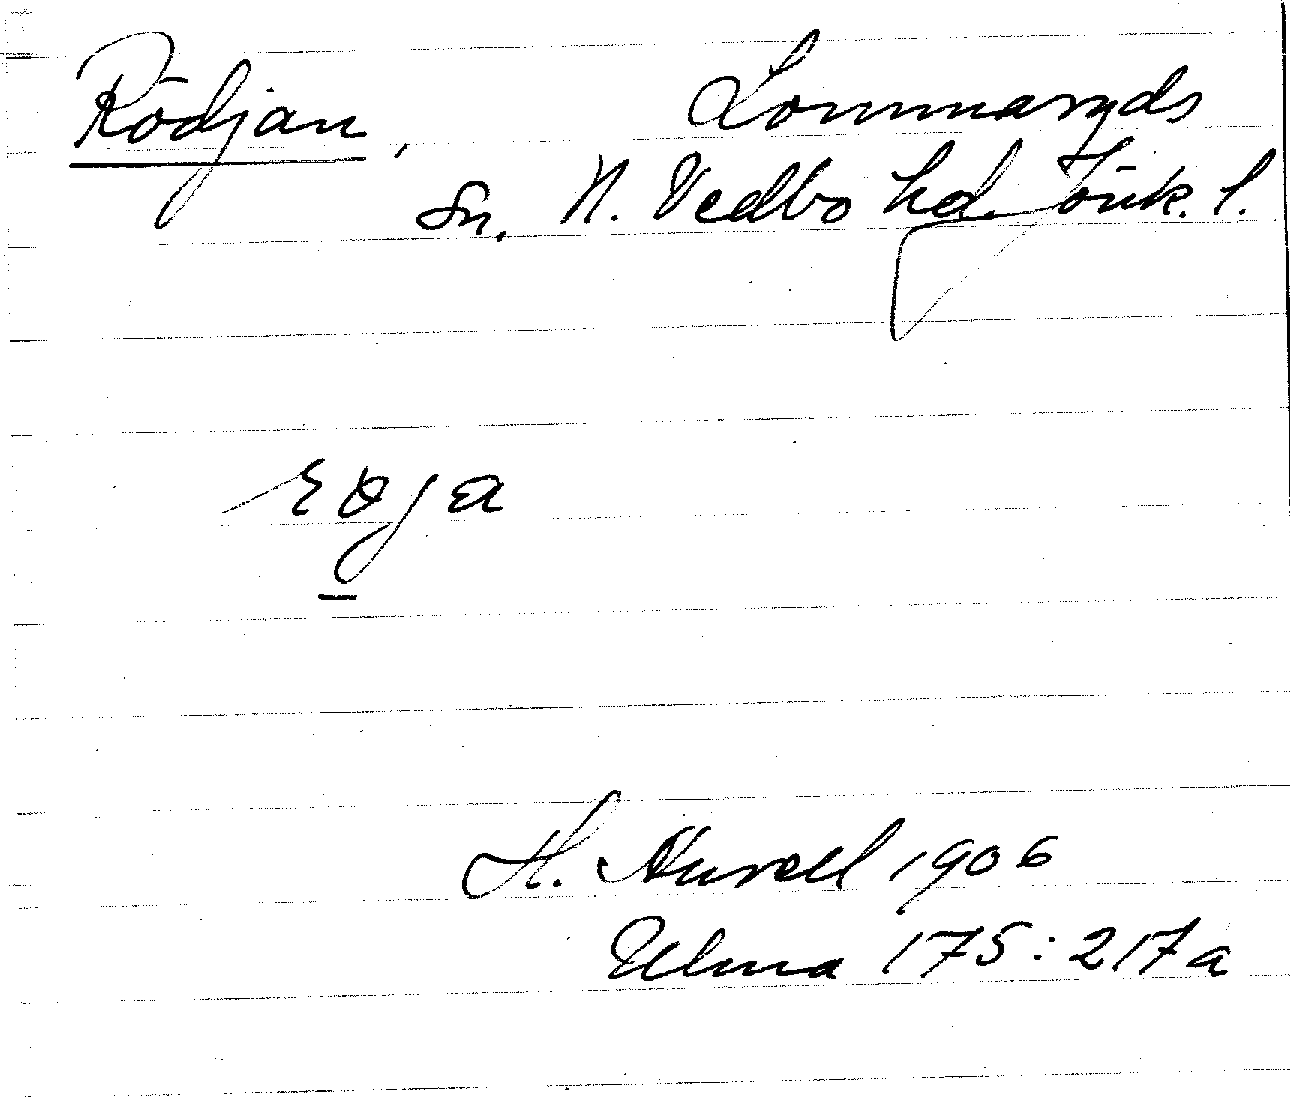 Rödjan, Lommaryds
Sn. N. Vedbo hd. Jönk. l.
röja
H. Aurell 1906
Ulma 175:217a